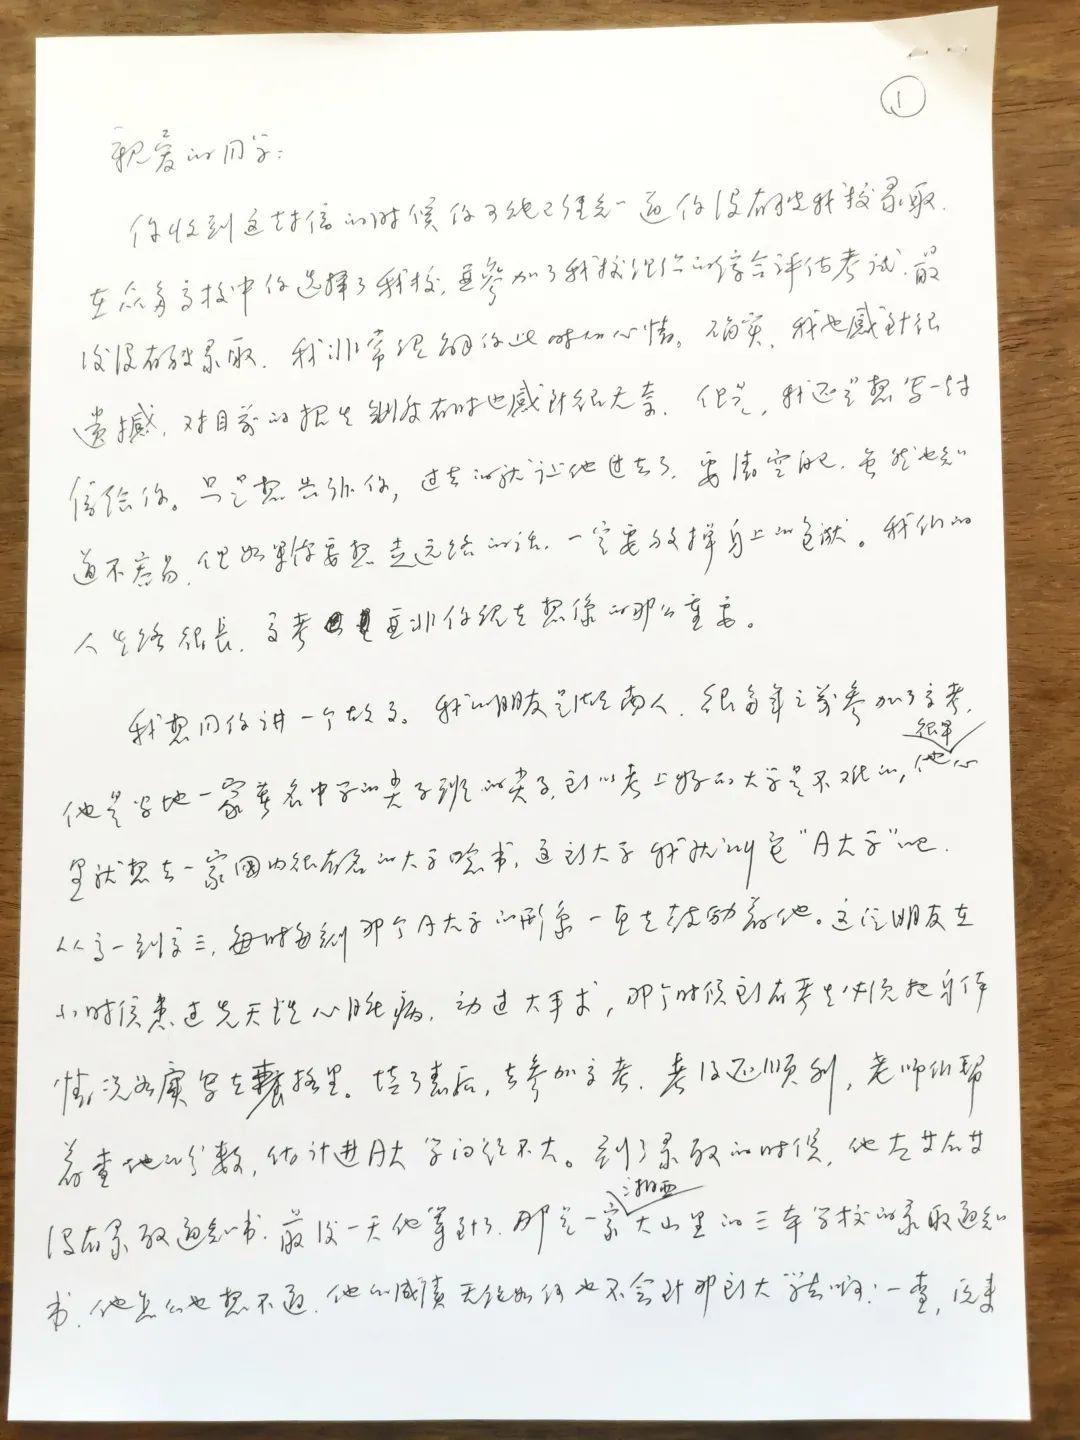 ①
亲爱的同学：
你收到这封信的时候你可能已经知道你没有被我校录取.
在众多高校中你选择了我校,并参加了我校组织的综合评估考试.最
后没有被录取.我非常理解你此时的心情。确实,我也感到很
遗憾,对目前的招生制度有时也感到很无奈.但是,我还是想写一封
信给你。只是想告诉你,过去的就让他过去了.要清空自己.虽然也知
道不容易,但如果你要想走远路的话,一定要放掉身上的包袱。我们的
人生路很长,高考并非你现在想像的那么重要。
我想同你讲一个故事。我的朋友是湖南人,很多年之前参加了高考,
他是当地一家著名中学的尖子班的尖子,所以考上好的大学是不难的,他很早心
里就想去一家国内很有名的大学念书,这所大学我就叫它"A大学"吧.
从高一到高三,每时每刻那个A大学的形象一直在鼓励着他。这位朋友在
小时候患过先天性心脏病,动过大手术,那个时候所有考生必须把身体
情况如实写在表格里。填了表后,去参加高考,考得还顺利,老师们帮
着查他的分数,估计进A大学问题不大。到了录取的时候,他左等右等
没有录取通知书.最后一天他等到了.那是一家湘西大山里的三本学校的录取通知
书.他怎么也想不通.他的成绩无论如何也不会到那所大学去啊!一查,原来